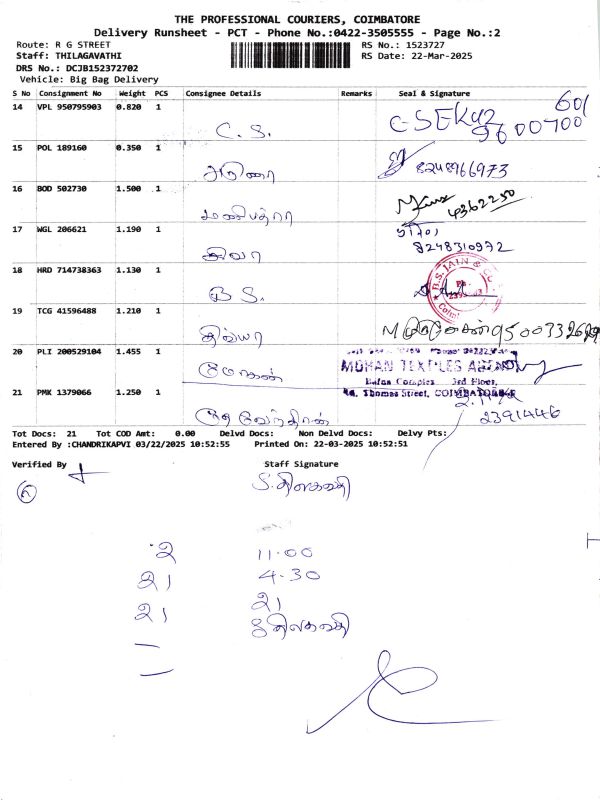 THE PROFESSIONAL COURIERS, COIMBATORE
Delivery Runsheet - PCT - Phone No.:0422-3505555 - Page No.:2
Route: R G STREET RS No.: 1523727
Staff: THILAGAVATHI RS Date: 22-Mar-2025
DRS No.: DCJB152372702
Vehicle: Big Bag Delivery
S No Consignment No Weight PCS Consignee Details Remarks Seal & Signature
14 VPL 950795903 0.820 1 C. S. 601
9600700
15 POL 189160 0.350 1 அருணா 8248966973
16 BOD 502730 1.500 1 4362250
17 WGL 206621 1.190 1 சிவா 8248310972
18 HRD 714738363 1.130 1 B S. B.S. JAIN & CO
19 TCG 41596488 1.210 1 திவ்யா
20 PLI 200529104 1.455 1 மோகன் MOHAN TEXTILES AGENCY
Bafna Complex 3rd Floor,
Thomas Street, COIMBATORE
21 PMK 1379066 1.250 1 2391446
Tot Docs: 21 Tot COD Amt: 0.00 Delvd Docs: Non Delvd Docs: Delvy Pts:
Entered By :CHANDRIKAPVI 03/22/2025 10:52:55 Printed On: 22-03-2025 10:52:51
Verified By Staff Signature
S. திலகவதி
2 11.00
21 4.30
21 21
திலகவதி